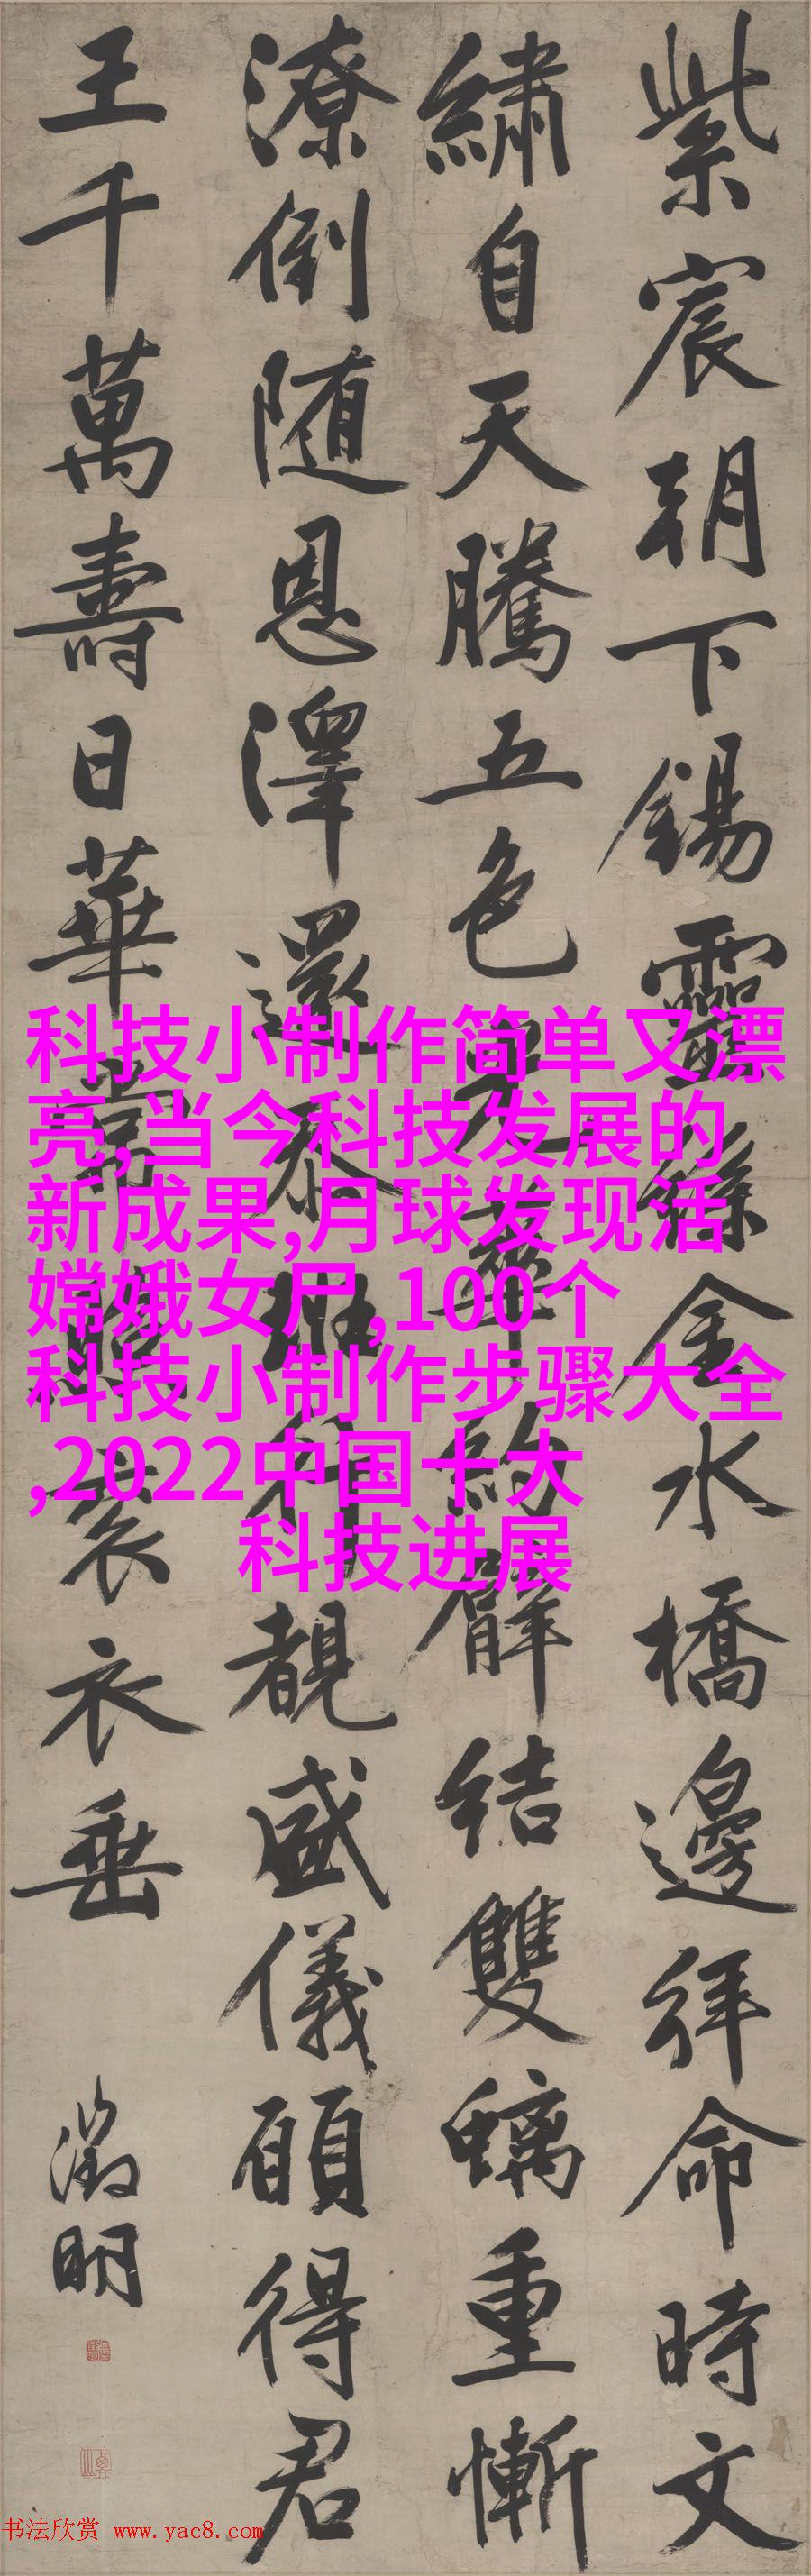 紫宸朝下錫靈絲金水橋邊拜命時文
繡自天騰五色華約臂結雙螭重慚
潦倒隨恩澤還忝班行覩盛儀願得君
王千萬壽日華常照袞衣垂
徵明
科技小制作简单又漂
亮,当今科技发展的
新成果,月球发现活
嫦娥女尸,100个
科技小制作步骤大全
,2022中国十大
科技进展
书法欣赏 www.yac8.com